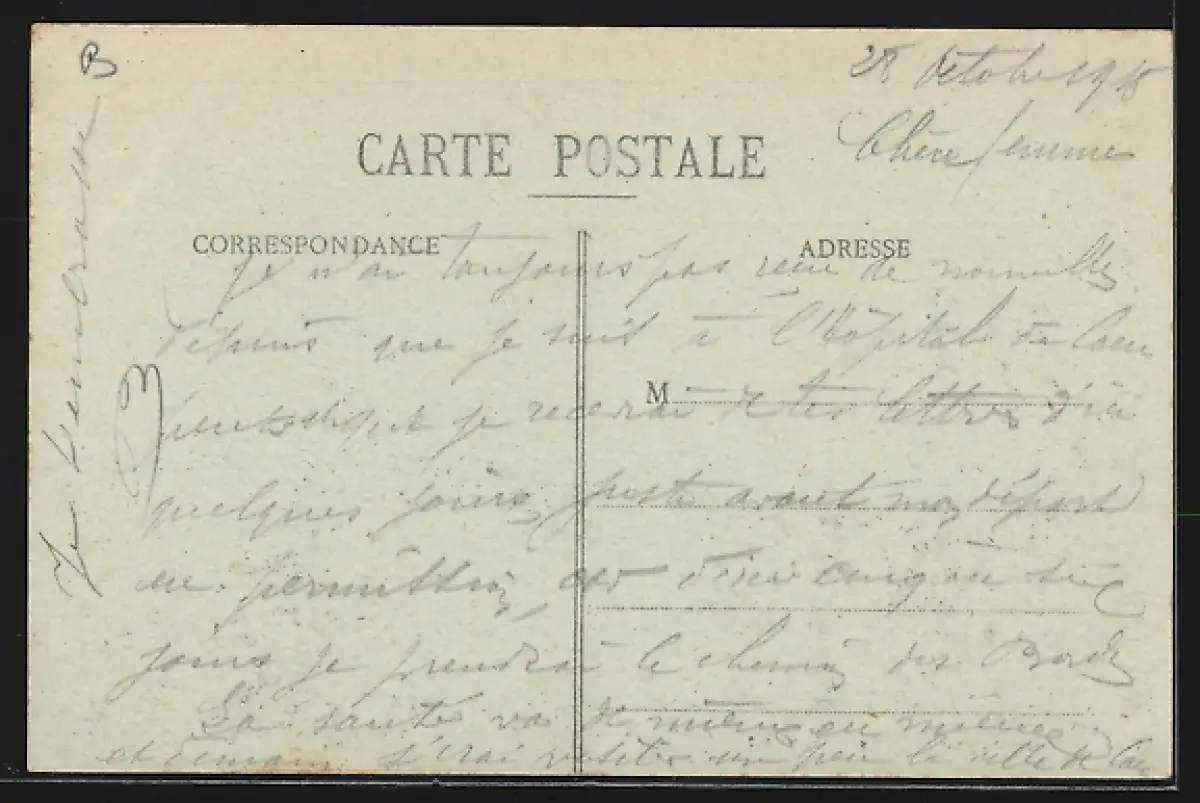 28 Octobre 1918
Chère femme
CARTE POSTALE
CORRESPONDANCE
ADRESSE
Je n'ai toujours pas reçu de nouvelles
depuis que je suis à l'Hôpital de Caen
M
peut je recevrai de tes lettres d'ici
quelques jours, juste avant mon départ
en permission, car d'ici cinq ou six
jours je prendrai le chemin des
La santé va de mieux en mieux
et demain j'irai visiter un peu la ville de Caen
Je t'embrasse
B